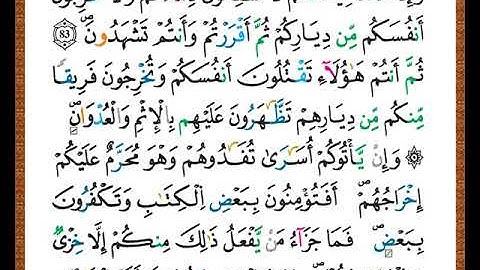 أَنفُسَكُم مِّن دِيَارِكُمْ ثُمَّ أَقْرَرْتُمْ وَأَنتُمْ تَشْهَدُونَۖ 83
ثُمَّ أَنتُمْ هَٰٓؤُلَآءِ تَقْتُلُونَ أَنفُسَكُمْ وَتُخْرِجُونَ فَرِيقاً
مِّنكُم مِّن دِيَارِهِمْ تَظَّٰهَرُونَ عَلَيْهِم بِالْإِثْمِ وَالْعُدْوَٰنِۖ
۞ وَإِنْ يَّأْتُوكُمْ أُسَٰرَىٰ تُفَٰدُوهُمْ وَهُوَ مُحَرَّمٌ عَلَيْكُمْ
إِخْرَاجُهُمْۖ أَفَتُؤْمِنُونَ بِبَعْضِ اِ۬لْكِتَٰبِ وَتَكْفُرُونَ
بِبَعْضٖۖ فَمَا جَزَآءُ مَنْ يَّفْعَلُ ذَٰلِكَ مِنكُمْ إِلَّا خِزْيٌ